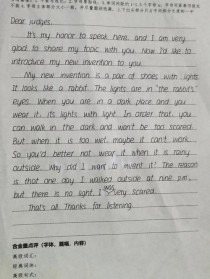 Dear judges,
It's my honor to speak here, and I am very
glad to share my topic with you. Now I'd like to
introduce my new invention to you.
My new invention is a pair of shoes with lights
It looks like a rabbit. The lights are in "the rabbit's
eyes. When you are in a dark place and you
wear it, its lights with light. In order that, you
can walk in the dark and won't be too scared.
But when it is too wet, maybe it can't work.
So you'd better not wear it when it is rainy
outside. Why did I want to invent it? The reason
is that one day I walked outside at nine pm,
but there is no light. I was very scared.
That's all. Thanks for listening.
含金量点评（字体、篇幅、内容）
高级词汇：
经典词块：
高级句式：